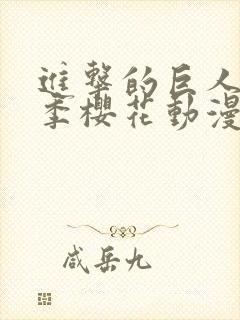 進擊的巨人
季櫻花動漫
咸岳九